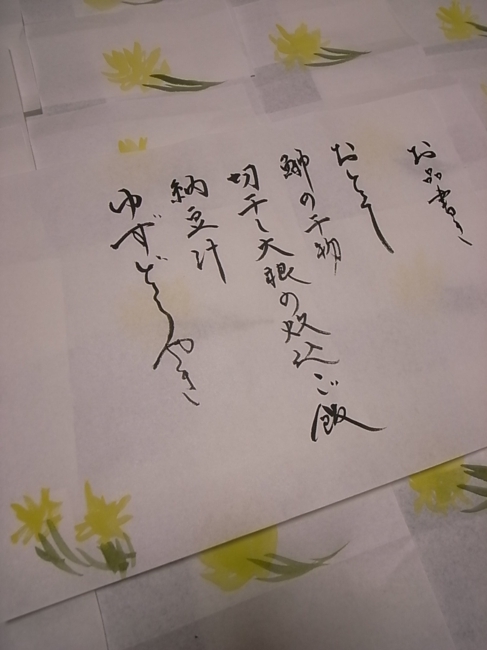 お品書き
おとそ
鰤の干物
切干し大根の炊込ご飯
納豆汁
ゆずどらやき